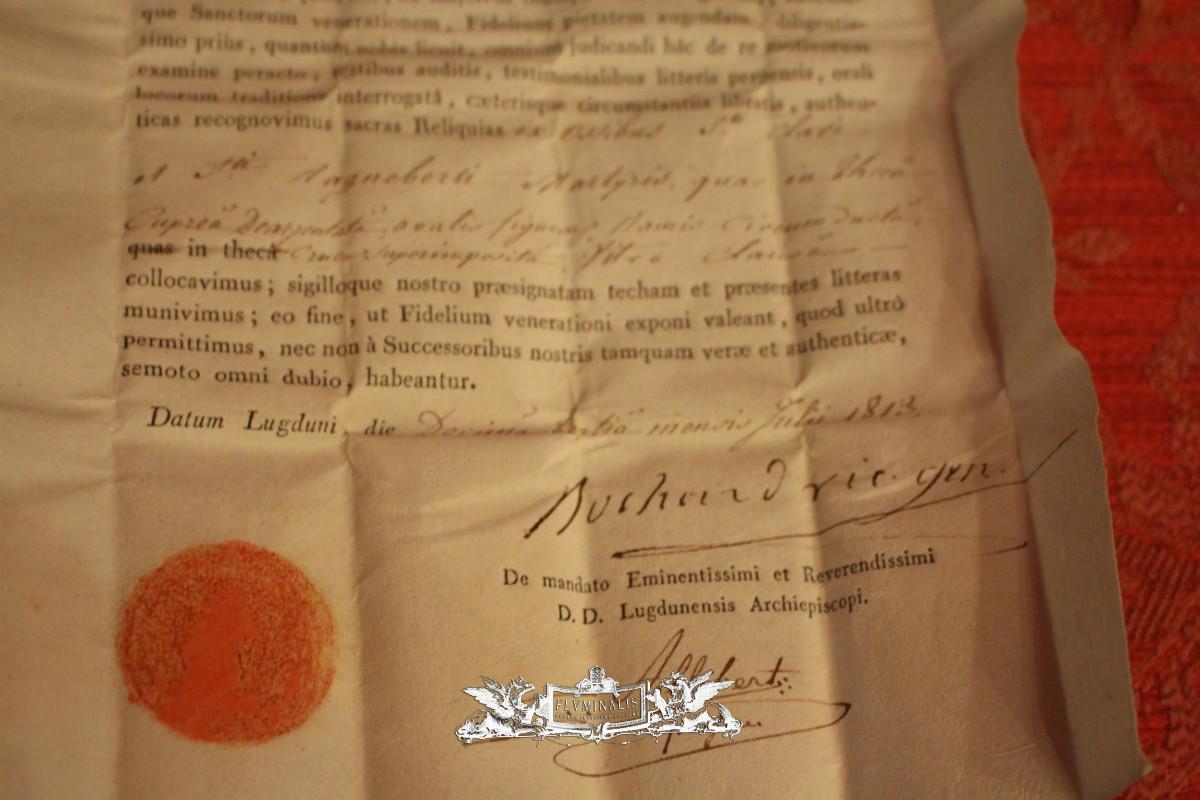 que Sanctorum venerationem, Fidelium pietatem augendam diligentis-
simo priùs, quantùm nobis licuit, omnium judicandi hâc de re motivorum
examine peracto, testibus auditis, testimonialibus litteris perpensis, orali
locorum traditione interrogatâ, cæterisque circumstantiis libratis, authen-
ticas recognovimus sacras Reliquias ex ossibus Sti Clari
et Sti Ragneberti Martyris, quas in thecâ
Cupreâ Deargentatâ, ovalis figuræ, Ramis Circumductâ,
quas in thecâ Cruce Superimpositâ, Vitro clausâ
collocavimus; sigilloque nostro præsignatam techam et præsentes litteras
munivimus; eo fine, ut Fidelium venerationi exponi valeant, quod ultrò
permittimus, nec non à Successoribus nostris tamquam veræ et authenticæ,
semoto omni dubio, habeantur.
Datum Lugduni, die Decimâ tertiâ mensis Julii 1813.
Bochard vic. gen.
De mandato Eminentissimi et Reverendissimi
D. D. Lugdunensis Archiepiscopi.
FLVMINALIS